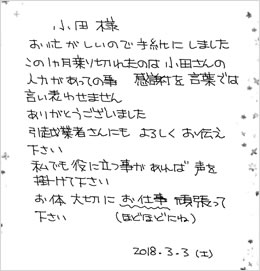 小田様
お忙しいので手紙にしました
この1ヵ月乗り切れたのは小田さんの
人力があっての事 感謝を言葉では
言い表わせません
ありがとうございました
引越業者さんにも よろしくお伝え
下さい
私でも役に立つ事があれば 声を
掛けて下さい
お体 大切に お仕事 頑張って
下さい (ほどほどにね)
2018.3.3 (土)